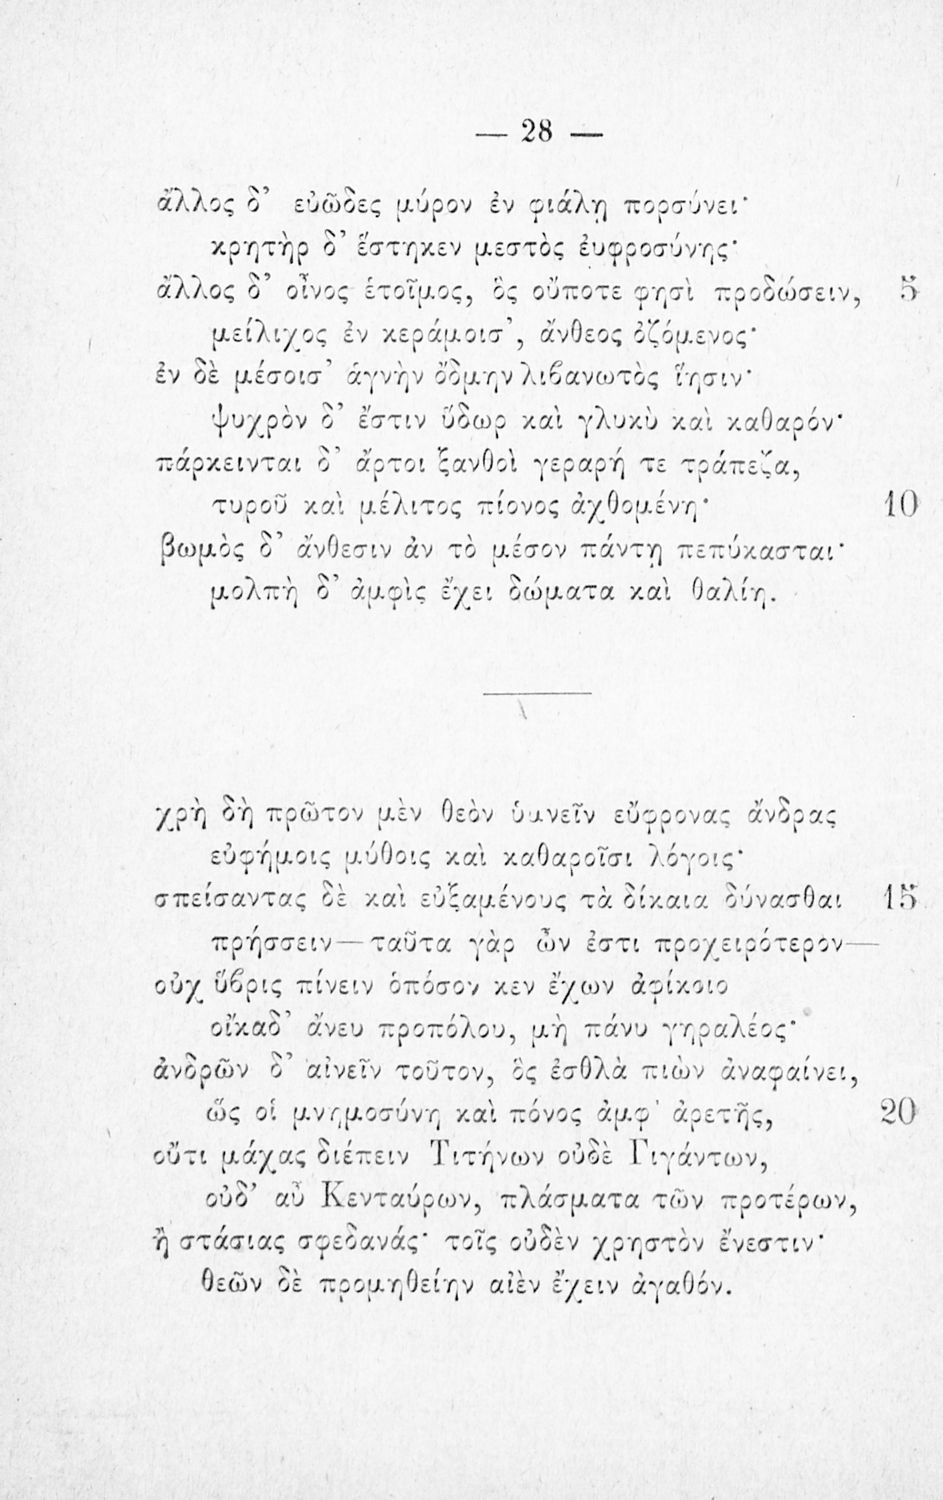 — 28 —
ἄλλος δ’ εὐῶδες μύρον ἐν φιάλῃ πορσύνει·
κρητὴρ δ’ ἕστηκεν μεστὸς ἐυφροσύνης·
ἄλλος δ’ οἶνος ἑτοῖμος, ὃς οὔποτε φησὶ προδώσειν, 5
μείλιχος ἐν κεράμοισ’, ἄνθεος ὀζόμενος·
ἐν δὲ μέσοισ’ ἁγνὴν ὄδμην λιϐανωτὸς ἵησιν·
ψυχρὸν δ’ ἔστιν ὕδωρ καὶ γλυκὺ καὶ καθαρόν·
πάρκεινται δ’ ἄρτοι ξανθοὶ γεραρή τε τράπεζα,
τυροῦ καὶ μέλιτος πίονος ἀχθομένη· 10
βωμὸς δ’ ἄνθεσιν ἀν τὸ μέσον πάντῃ πεπύκασται·
μολπὴ δ’ ἀμφὶς ἔχει δώματα καὶ θαλίη.
χρὴ δὴ πρῶτον μὲν θεὸν ὑμνεῖν εὔφρονας ἄνδρας
εὐφήμοις μύθοις καὶ καθαροῖσι λόγοις·
σπείσαντας δὲ καὶ εὐξαμένους τὰ δίκαια δύνασθαι 15
πρήσσειν — ταῦτα γὰρ ὦν ἐστι προχειρότερον —
οὐχ ὕϐρις πίνειν ὁπόσον κεν ἔχων ἀφίκοιο
οἴκαδ’ ἄνευ προπόλου, μὴ πάνυ γηραλέος·
ἀνδρῶν δ’ αἰνεῖν τοῦτον, ὃς ἐσθλὰ πιὼν ἀναφαίνει,
ὥς οἱ μνημοσύνη καὶ πόνος ἀμφ’ ἀρετῆς, 20
οὔτι μάχας διέπειν Τιτήνων οὐδὲ Γιγάντων,
οὐδ’ αὖ Κενταύρων, πλάσματα τῶν προτέρων,
ἢ στάσιας σφεδανάς· τοῖς οὐδὲν χρηστὸν ἔνεστιν·
θεῶν δὲ προμηθείην αἰὲν ἔχειν ἀγαθόν.